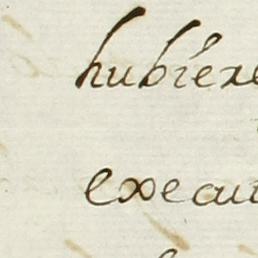 hubiéxe
execut